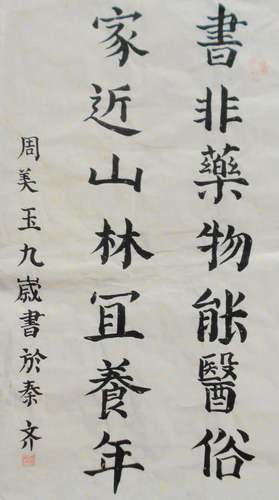 書非藥物能醫俗
家近山林宜養年
周美玉九歲書於秦齐